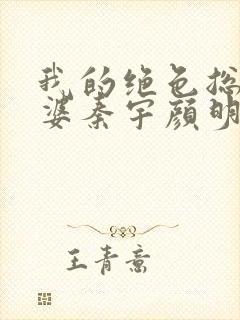 我的绝色总
婆秦宇颜明
王青意